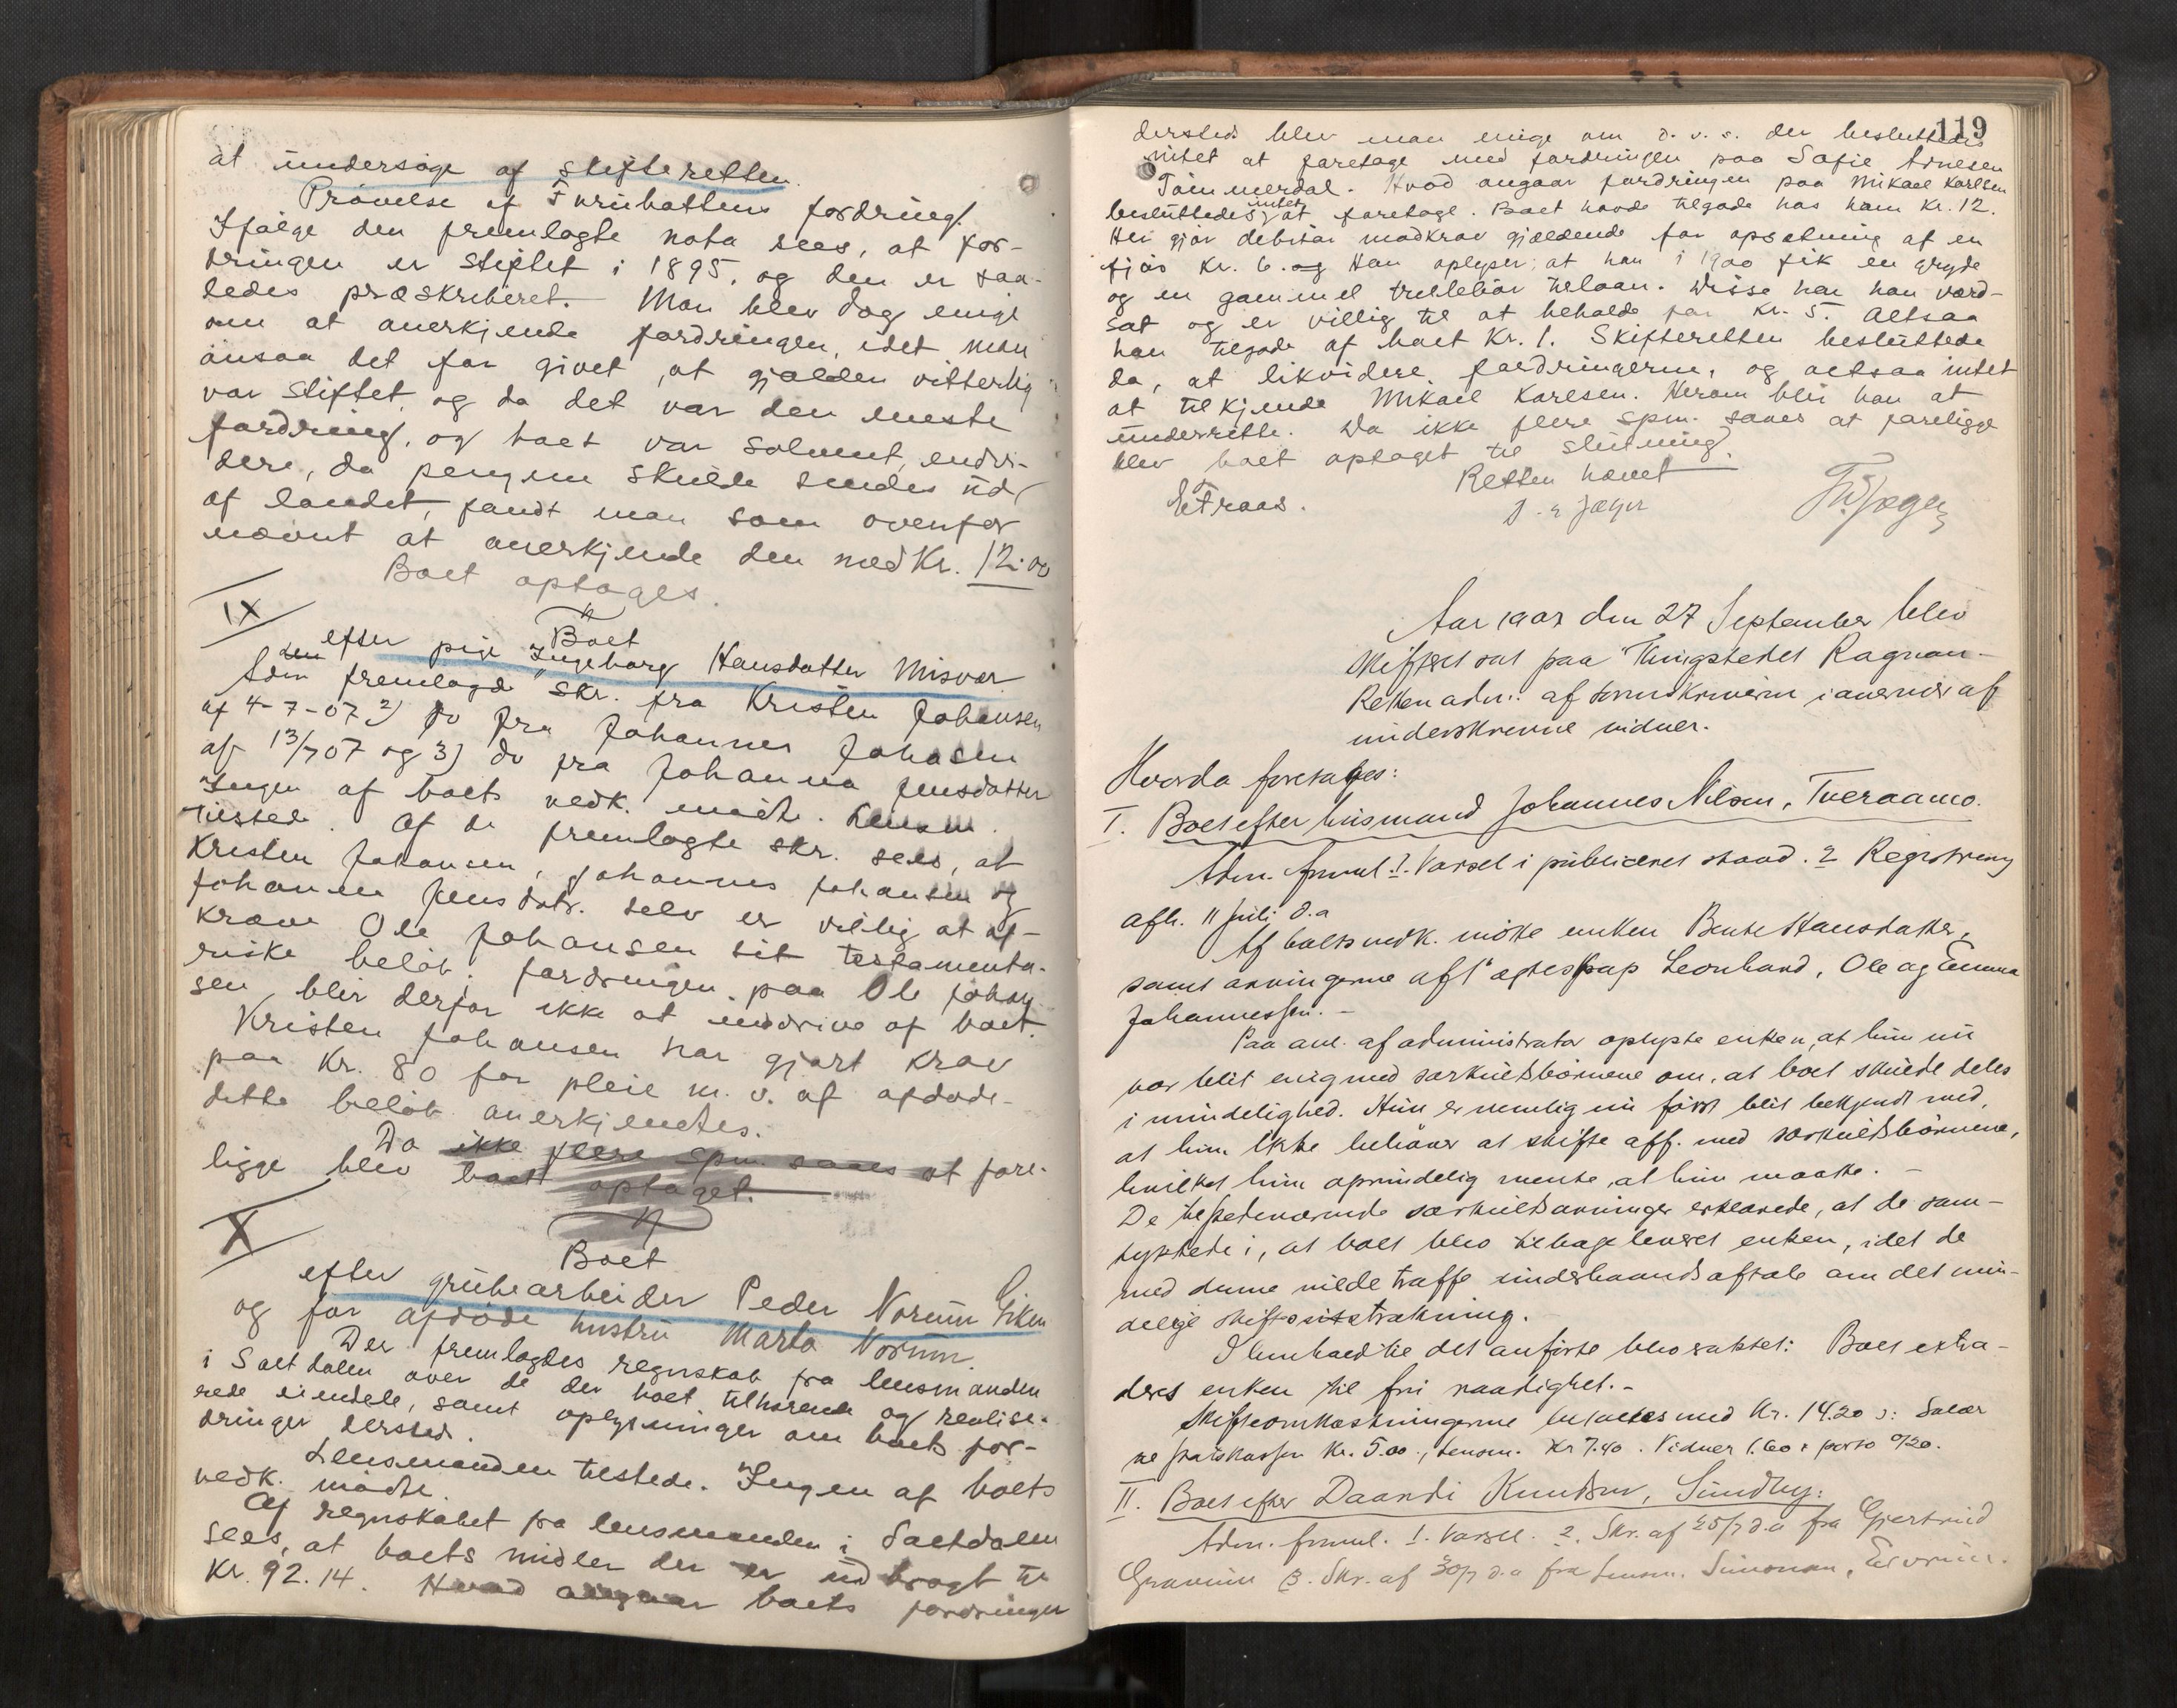 at undersøge af skifteretten.
Prövelse af Furubattens fordring.
Ifølge den fremlagte nota sees, at for-
dringen er stiftet i 1895, og den er saa-
ledes præskriberet. Man blev dog enige
om at anerkjende fordringen, idet man
ansaa det for givet, at gjælden vitterlig
var stiftet, og da det var den eneste
fordring, og boet var solvent, endvi-
dere, da pengene skulde sendes ud
af landet, fandt man som ovenfor
nævnt at anerkjende den med Kr. 12.00
Boet optages.
IX
Boet
efter pige Ingeborg Hansdatter Misvær
Adm fremlagde skr. fra Kristen Johansen
af 4-7-07 2) do fra Johannes Johasen
af 13/7 07 og 3) do fra Johanna Jensdatter
Ingen af boets vedk. mødte. Lensm.
tilstede. Af de fremlagte skr. sees, at
Kristen Johansen, Johannes Johansen og
Johanna Jensdatr. selv er villig at af-
kræve Ole Johansen sit testamenta-
riske beløb; fordringen paa Ole Johan-
sen blir derfor ikke at inddrive af boet.
Kristen Johansen har gjort krav
paa Kr. 80 for pleie m. v. af afdøde -
dette beløb anerkjendtes.
Da ikke flere spm. saaes at fore-
ligge blev boet optaget.
X
Boet
efter grubearbeider Peder Norum
og før afdøde hustru Marta Norum.
Der fremlagdes regnskab fra lensmanden
i Saltdalen over de der boet tilhørende og realise-
rede eiendele, samt oplysninger om boets for-
dringer dersted.
Lensmanden tilstede. Ingen af boets
vedk. mødte.
Af regnskabet fra lensmanden i Saltdalen
sees, at boets midler der er udbragt til
Kr. 92.14. Hvad angaar boets fordringer
119
dersteds blev man enige om d. v. s. der besluttedes
intet at foretage med fordringen paa Sofie Arnesen
Tømmerdal. Hvad angaar fordringen paa Mikael Karlsen
besluttedes intet at foretage. Boet havde tilgode hos ham Kr. 12.
Her gjør debitor modkrav gjældende for opsetning af en
fjøs Kr. 6. og Han oplyser, at han i 1900 fik en gryde
og en gammel trillebør tillaan. Disse har han værd-
sat og er villig til at beholde for Kr. 5. Altsaa
han tilgode af boet Kr. 1. Skifteretten besluttede
da, at likvidere fordringerne, og altsaa intet
at tilkjende Mikael Karlsen. Herom blir han at
underrette. Da ikke flere spm. saaes at foreligge
blev boet optaget til slutning.
Retten hævet
Jæger
Aar 1907 den 27 September blev
skifteret sat paa Thingstedet Rognan.
Retten adm: af sorenskriveren i nærvær af
underskrevne vidner.
Hvorda foretages:
I. Boet efter husmand Johannes Nilsen, Tveraamo.
Adm. freml. 1. Varsel i publiceret stand. 2 Registrering
afh. 11 juli d.a
Af boets vedk. møtte enken Berte Hansdatter,
samt arvingerne af 1ste ægteskap Leonhard, Ole og Emma
Johannessen. -
Paa anl. af administrator oplyste enken, at hun nu
var blit enig med særkuldsbørnene om, at boet skulde deles
i mindelighed. Hun er nemlig nu først blit bekjendt med,
at hun ikke behøver at skifte aff. med særkuldsbørnene,
hvilket hun oprindelig mente, at hun maatte. -
De tilstedeværende særkuldsarvinger erklærede, at de sam-
tykkede i, at boet blev tilbageleveret enken, idet de
med denne vilde træffe underhaandsaftale om det min-
delige skiftes utstrækning.
I henhold til det anførte blev vaktet: Boet extra-
deres enken til fri raadighet. -
Skifteomkostningerne bestaaes med Kr. 14.20 ɔ: Salær
til statskassen Kr. 5.00, Lensm. Kr 7.40. Vidner 1.60 & porto 0/20.
II. Boet efter Daardi Knudsen, Sundby:
Adm. fremml. 1. Varsel. 2. Skr. af 25/7 d.a fra Gjertrud
3. Skr. af 30/7 d.a fra Lensm. Simonsen,